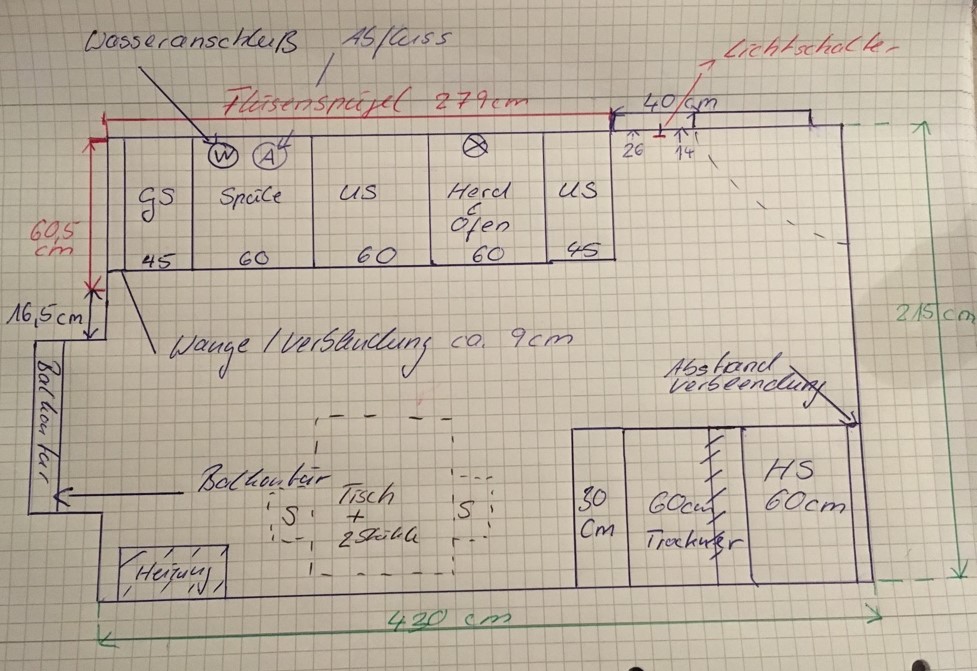 Wasseranschluß
Abfluss
Lichtschalter
Fliesenspiegel 279cm
40 cm
W
A
26
14
GS
Spüle
US
Herd
&
Ofen
US
45
60
60
60
45
60,5
cm
16,5cm
215 cm
Wange / Verblendung ca. 9cm
Balkontür
Abstand
verblendung
Balkontür
Tisch
+
2 Stühle
S
S
30
cm
60cm
Trockner
HS
60cm
Heizung
420 cm